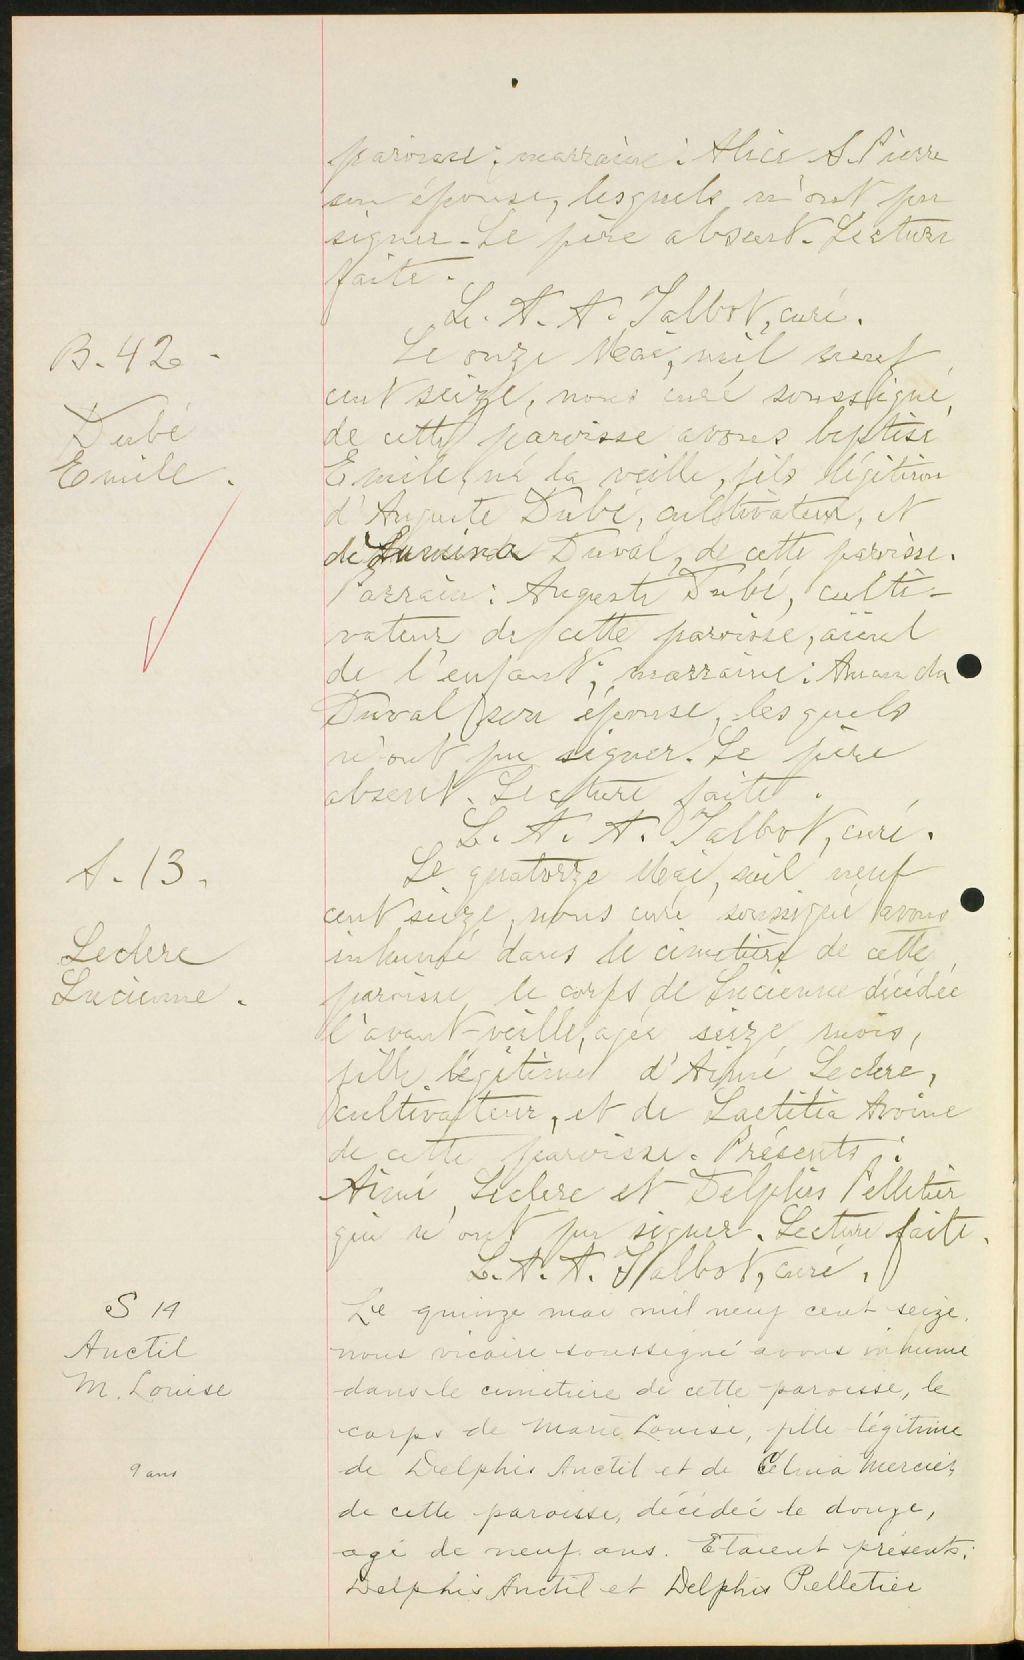 paroisse; marraine: Alice S. Pierre
son épouse, lesquels n'ont pu
signer. Le père absent. Lecture
faite.
L. A. A. Talbot, curé.
B. 42
Dubé
Emile.
Le onze Mai, mil neuf
cent seize, nous curé soussigné
de cette paroisse avons baptisé
Emile, né la veille, fils légitime
d'Auguste Dubé, cultivateur, et
de Lumina Duval, de cette paroisse.
Parrain: Auguste Dubé, culti-
vateur de cette paroisse, aïeul
de l'enfant; marraine: Amanda
Duval son épouse, lesquels
n'ont pu signer. Le père
absent. Lecture faite.
L. A. A. Talbot, curé.
S. 13.
Leclerc
Lucienne.
Le quatorze Mai, mil neuf
cent seize, nous curé soussigné avons
inhumé dans le cimetière de cette
paroisse le corps de Lucienne décédée
l'avant-veille, agée seize mois,
fille légitime d'Aimé Leclerc,
cultivateur, et de Laetitia Avoine
de cette paroisse. Présents:
Aimé Leclerc et Delphis Pelletier
qui n'ont pu signer. Lecture faite.
L. A. A. Talbot, curé.
S 14
Anctil
M. Louise
9 ans
Le quinze mai mil neuf cent seize.
nous vicaire soussigné avons inhumé
dans le cimetière de cette paroisse, le
corps de Marie Louise, fille légitime
de Delphis Anctil et de Célina Mercier
de cette paroisse, décédée le douze,
agé de neuf ans. Etaient présents:
Delphis Anctil et Delphis Pelletier